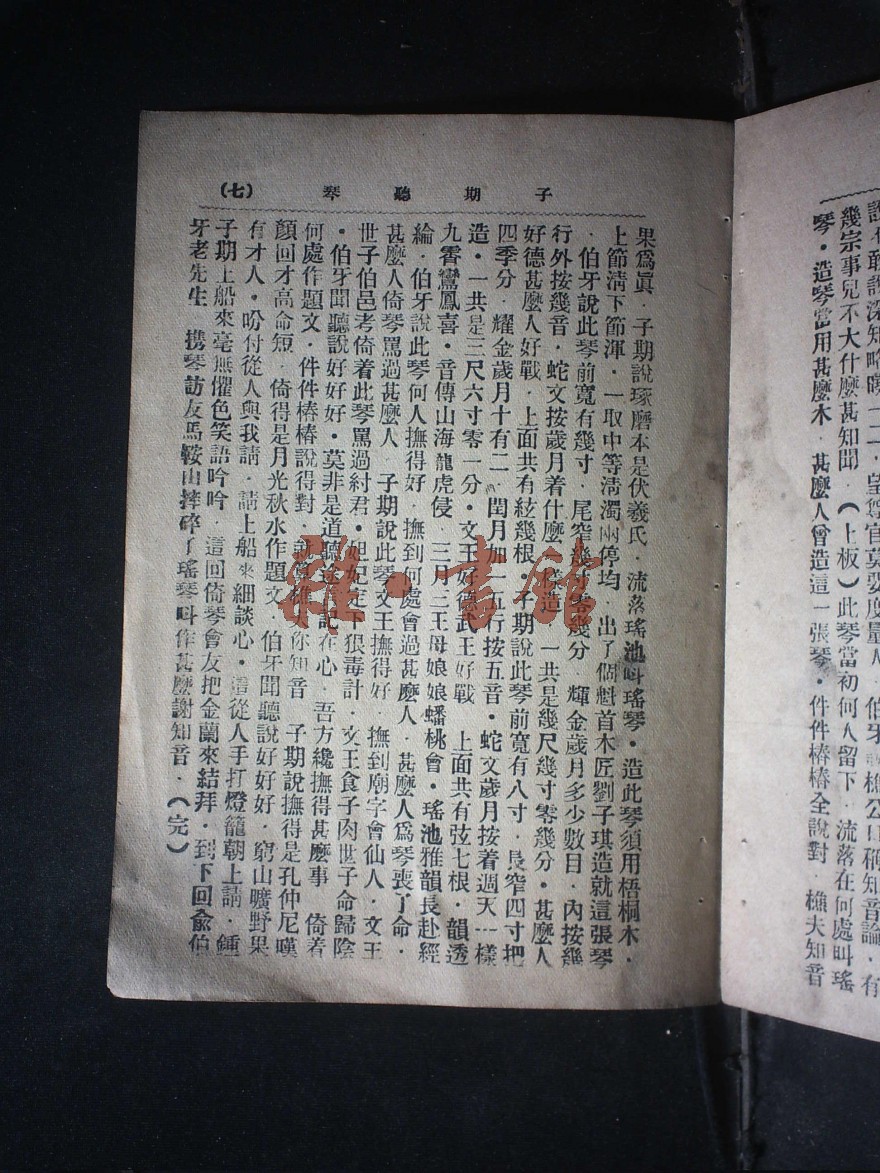 說不敢說深知略曉一二．望尊官莫要度量人．伯牙說樵公口稱知音論．有
幾宗事兒不大什麼甚知聞．(上板)此琴當初何人留下．流落在何處叫瑤
琴．造琴當用甚麼木．甚麼人曾造這一張琴．件件樁樁全說對．樵夫知音
子期聽琴 (七)
果爲眞．子期說琢磨本是伏羲氏．流落瑤池叫瑤琴．造此琴須用梧桐木．
上節淸下節渾．一取中等淸濁兩停均．出了個魁首木匠劉子琪造就這張琴
．伯牙說此琴前寬有幾寸．尾窄幾寸零幾分．輝金歲月多少數目．內按幾
行外按幾音．蛇文按歲月着什麼一樣造．一共是幾尺幾寸零幾分．甚麼人
好德甚麼人好戰．上面共有絃幾根．子期說此琴前寬有八寸．尾窄四寸把
四季分．耀金歲月十有二．閏月加一五行按五音．蛇文歲月按着週天一樣
造．一共是三尺六寸零一分．文王好德武王好戰 上面共有弦七根．韻透
九霄鸞鳳喜．音傳山海龍虎侵．三月三王母娘娘蟠桃會．瑤池雅韻長赴經
綸．伯牙說此琴何人撫得好．撫到何處會過甚麼人．甚麼人爲琴喪了命．
甚麼人倚琴罵過甚麼人．子期說此琴文王撫得好．撫到廟字會仙人．文王
世子伯邑考倚着此琴罵過紂君．妲妃定下狠毒計．文王食子肉世子命歸陰
．伯牙聞聽說好好好．莫非是道聽途 記在心．吾方纔撫得甚麼事 倚着
何處作題文．件件樁樁說得對． 你知音 子期說撫得是孔仲尼嘆
顏回才高命短．倚得是月光秋水作題文．伯牙聞聽說好好好．窮山曠野果
有才人．吩付從人與我請．請上船來細談心．這從人手打燈籠朝上請．鍾
子期上船來毫無懼色笑語吟吟．這回倚琴會友把金蘭來結拜．到下回俞伯
牙老先生 携琴訪友馬鞍山摔碎了瑤琴叫作甚麼謝知音．(完)
雜·書館